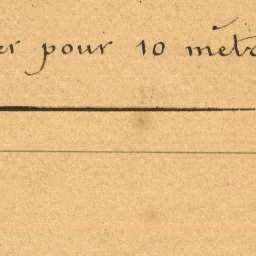 er pour 10 mètr